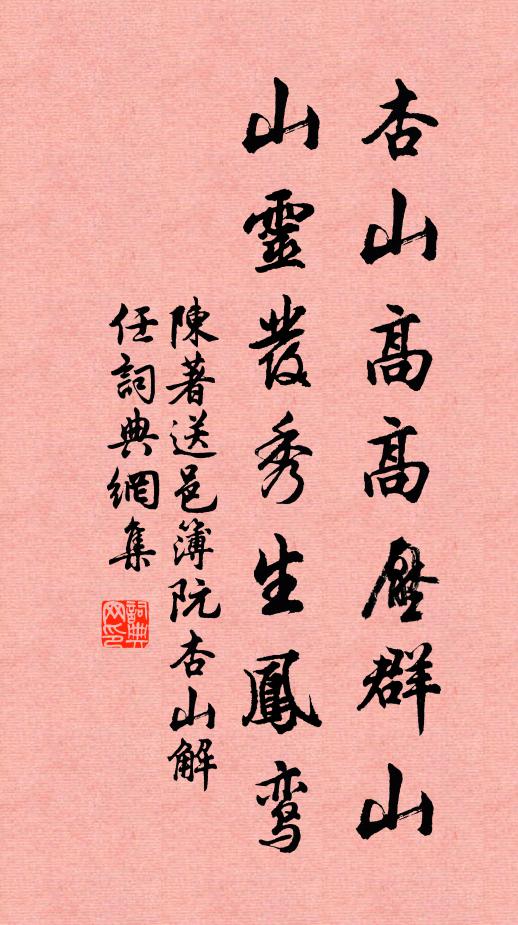 杏山高高壓群山
山靈發秀生鳳鸾
陳著送邑簿阮杏山解
任詞典網集
詞典网印